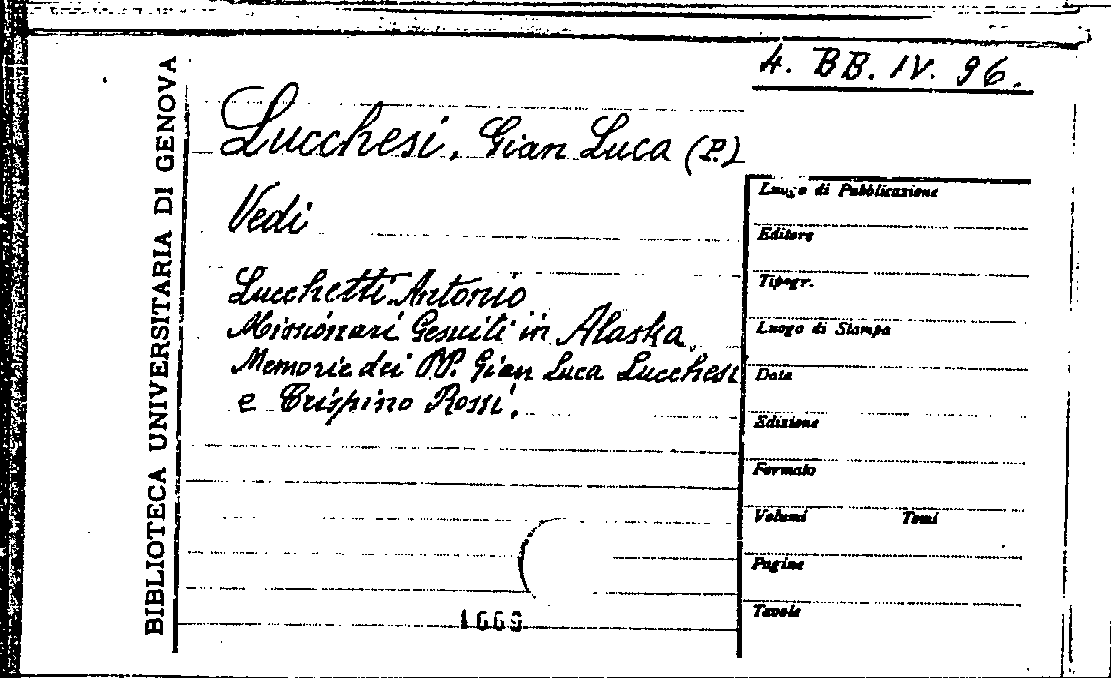 4. BB. IV. 96.
BIBLIOTECA UNIVERSITARIA DI GENOVA
Lucchesi, Gian Luca (P.)
Vedi
Lucchetti Antonio
Missionari Gesuiti in Alaska.
Memorie dei PP. Gian Luca Lucchesi
e Crispino Rossi.
1669
Luogo di Pubblicazione
Editore
Tipogr.
Luogo di Stampa
Data
Edizione
Formato
Volumi Tomi
Pagine
Tavole